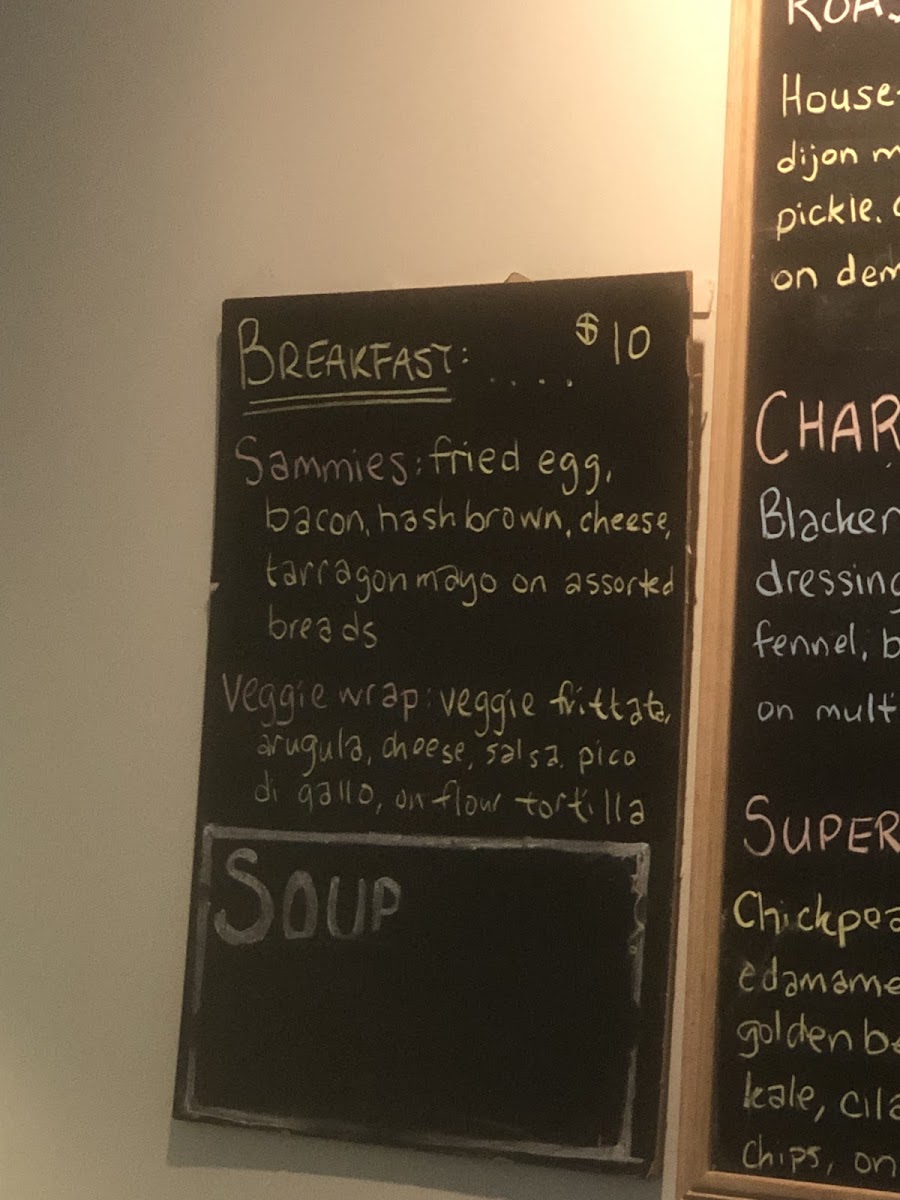 BREAKFAST: .... $10
Sammies: fried egg,
bacon, hash brown, cheese,
tarragon mayo on assorted
breads
Veggie wrap: veggie frittata,
arugula, cheese, salsa, pico
di gallo, on flour tortilla
SOUP
House-
dijon
pickle.
on
CHAR
Blacken
dressing
fennel,
on
SUPER
Chickpea
edamame
golden
kale,
chips, on